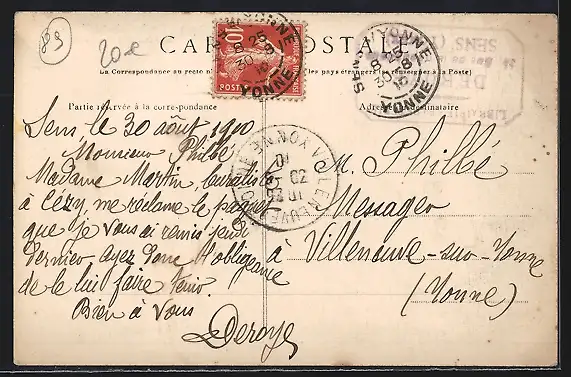 89
20 €
CARTE POSTALE
La Correspondance au recto n'
les pays étrangers (se renseigner à la Poste)
Partie réservée à la correspondance
Adresse du destinataire
10
POSTES
SENS S/YONNE
8 25
30 8
YONNE
SENS S/YONNE
8 25
30 8
YONNE
SENS
LIBRAIRIE
VILLENEUVE
YONNE
10
Sens, le 30 août 1910
Monsieur Philbé
Madame Martin, buraliste
à Cézy me réclame le paquet
que je vous ai remis jeudi
dernier ayez donc l'obligeance
de le lui faire tenir.
Bien à vous
Deroye
M. Philbé
Messager
à Villeneuve-sur-Yonne
(Yonne)